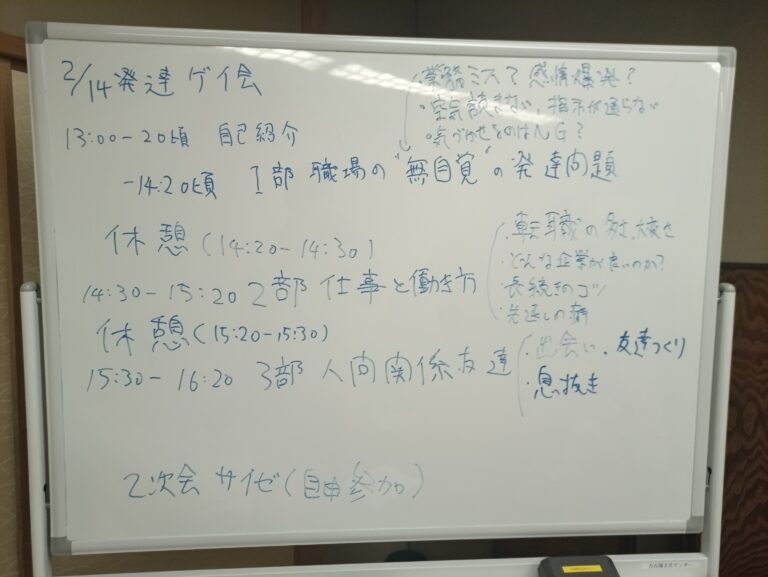 2/14 発達ゲイ会
・業務ミス？ 感情爆発？
・空気読めない、指示が通らない
・気づかせるのはNG？
13:00-20頃 自己紹介
-14:20頃 1部 職場の"無自覚"の発達問題
休憩(14:20-14:30)
・転職の多さ、大変さ
・どんな企業が良いのか？
・長続きのコツ
・先延しの癖
14:30-15:20 2部 仕事と働き方
休憩(15:20-15:30)
15:30-16:20 3部 人間関係友達
・出会い、友達づくり
・息抜き
2次会 サイゼ(自由参加)